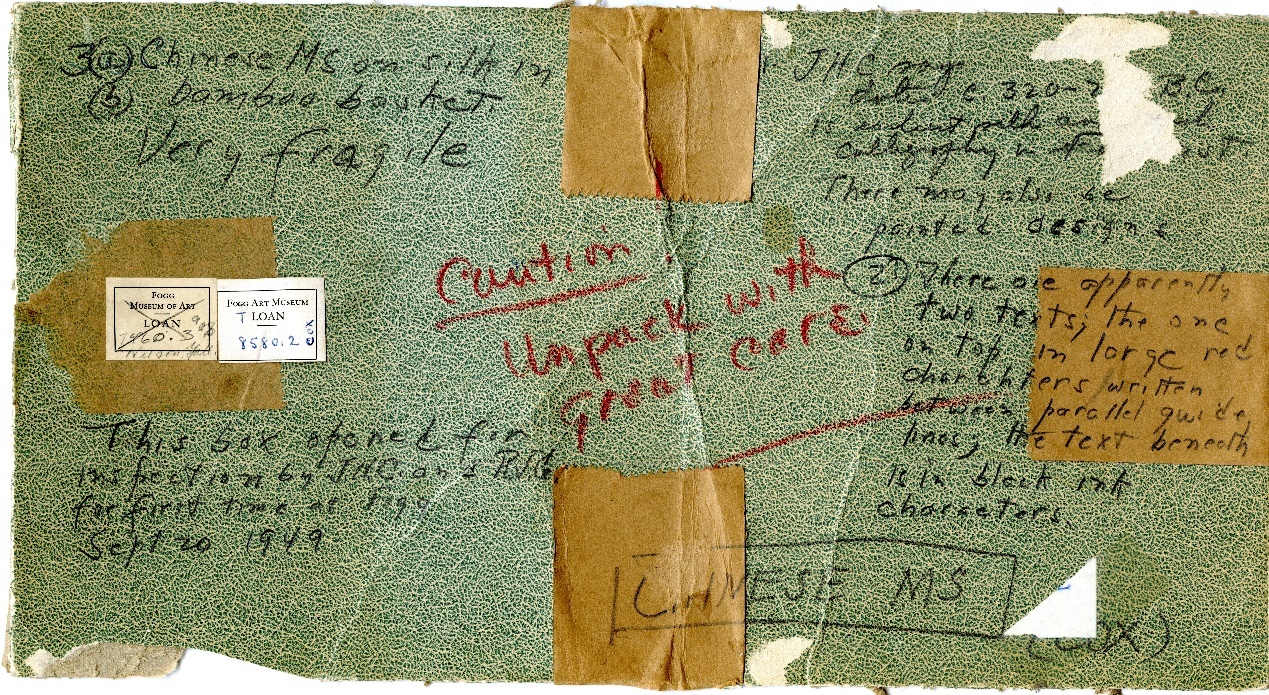 3(a) Chinese MS on silk in
(b) bamboo basket
Very fragile
FOGG
MUSEUM OF ART
LOAN
1960.3
FOGG ART MUSEUM
T LOAN
8580.2 COX
This box opened for
inspection by JHC and
for first time at Fogg
Sept 20 1949
Caution.
Unpack with
great care.
JHC
date c 320- B.C.
calligraphy in
There may also be
painted designs
(2) There are apparently
two texts; the one
on top in large red
characters written
between parallel guide
lines; the text beneath
is in black ink
characters
CHINESE MS
(COX)